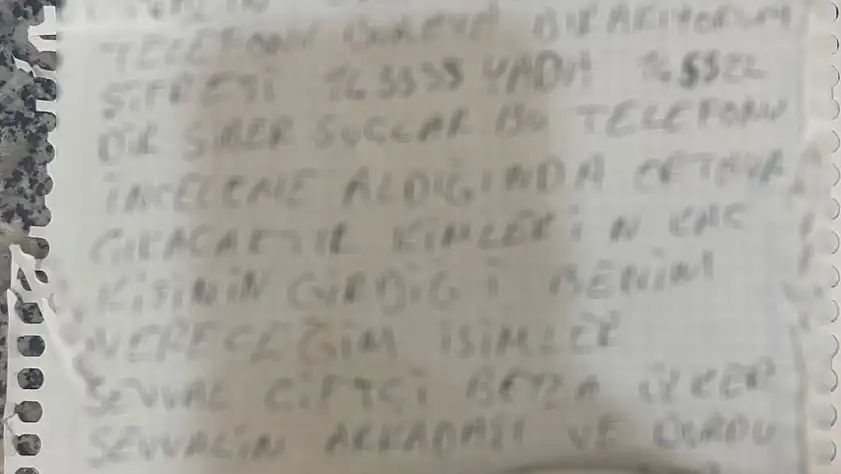 TELEFONU BURAYA BIRAKIYORUM
ŞİFRESİ YADA
DIR SİBER SUÇLAR BU TELEFONU
İNCELEME ALDIĞINDA ORTAYA
ÇIKACAKTIR KİMLERİN KAÇ
KİŞİNİN GİRDİĞİ BENİM
VERECEĞİM İSİMLER
ŞEVVAL ÇİFTÇİ BEYZA ÜLKER
ŞEVVALİN ARKADAŞI VE